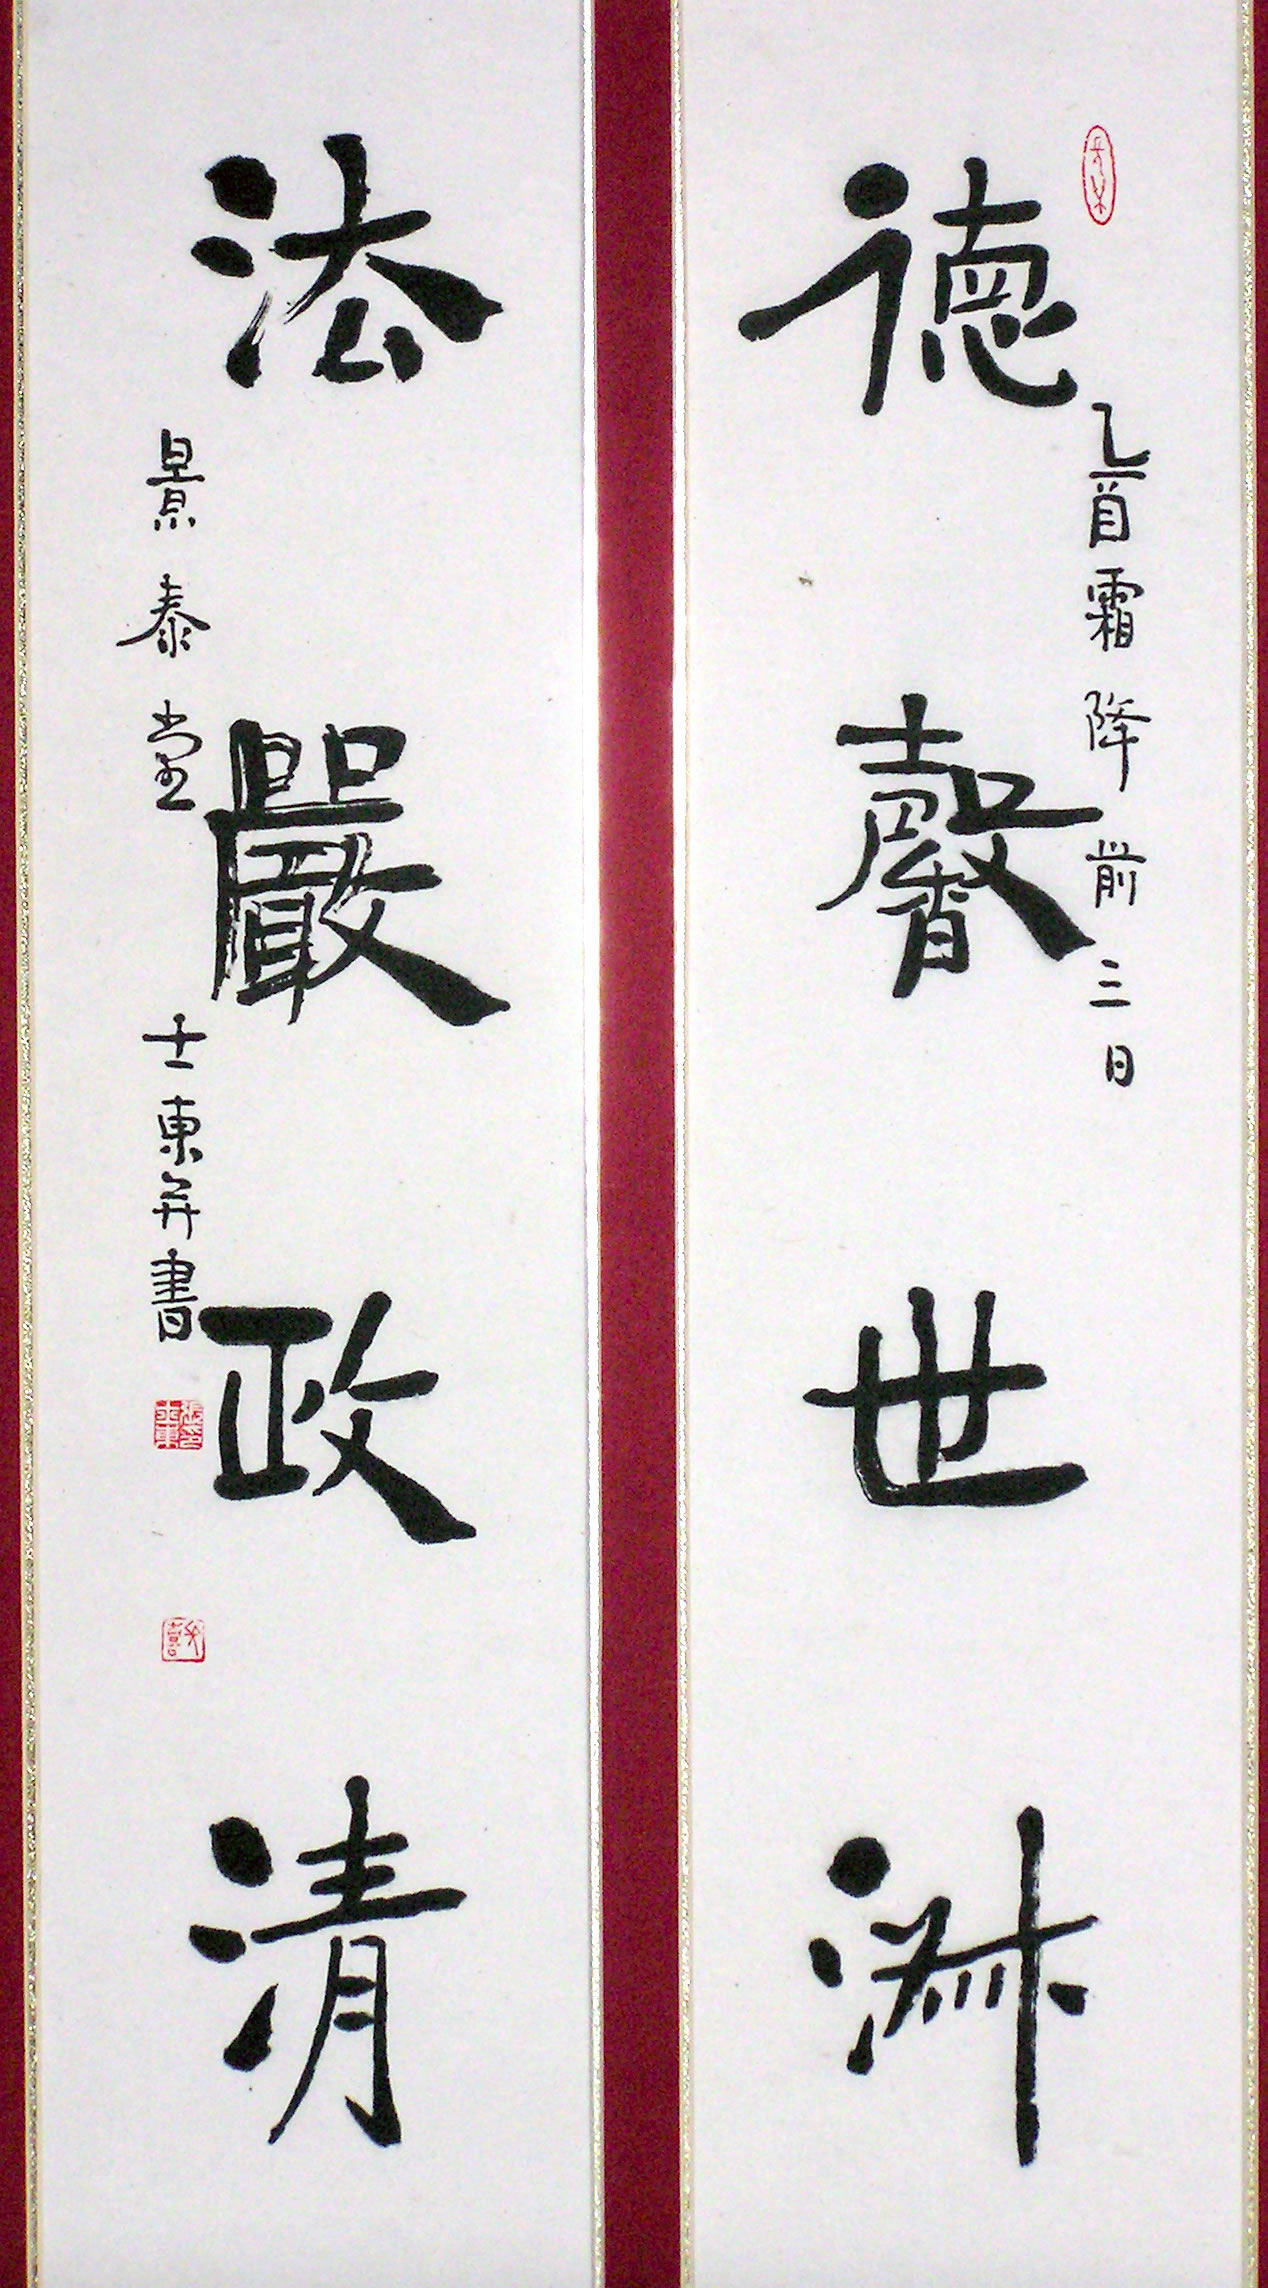 德馨世
乙酉霜降前三日
法嚴政清
景泰堂 士東并書